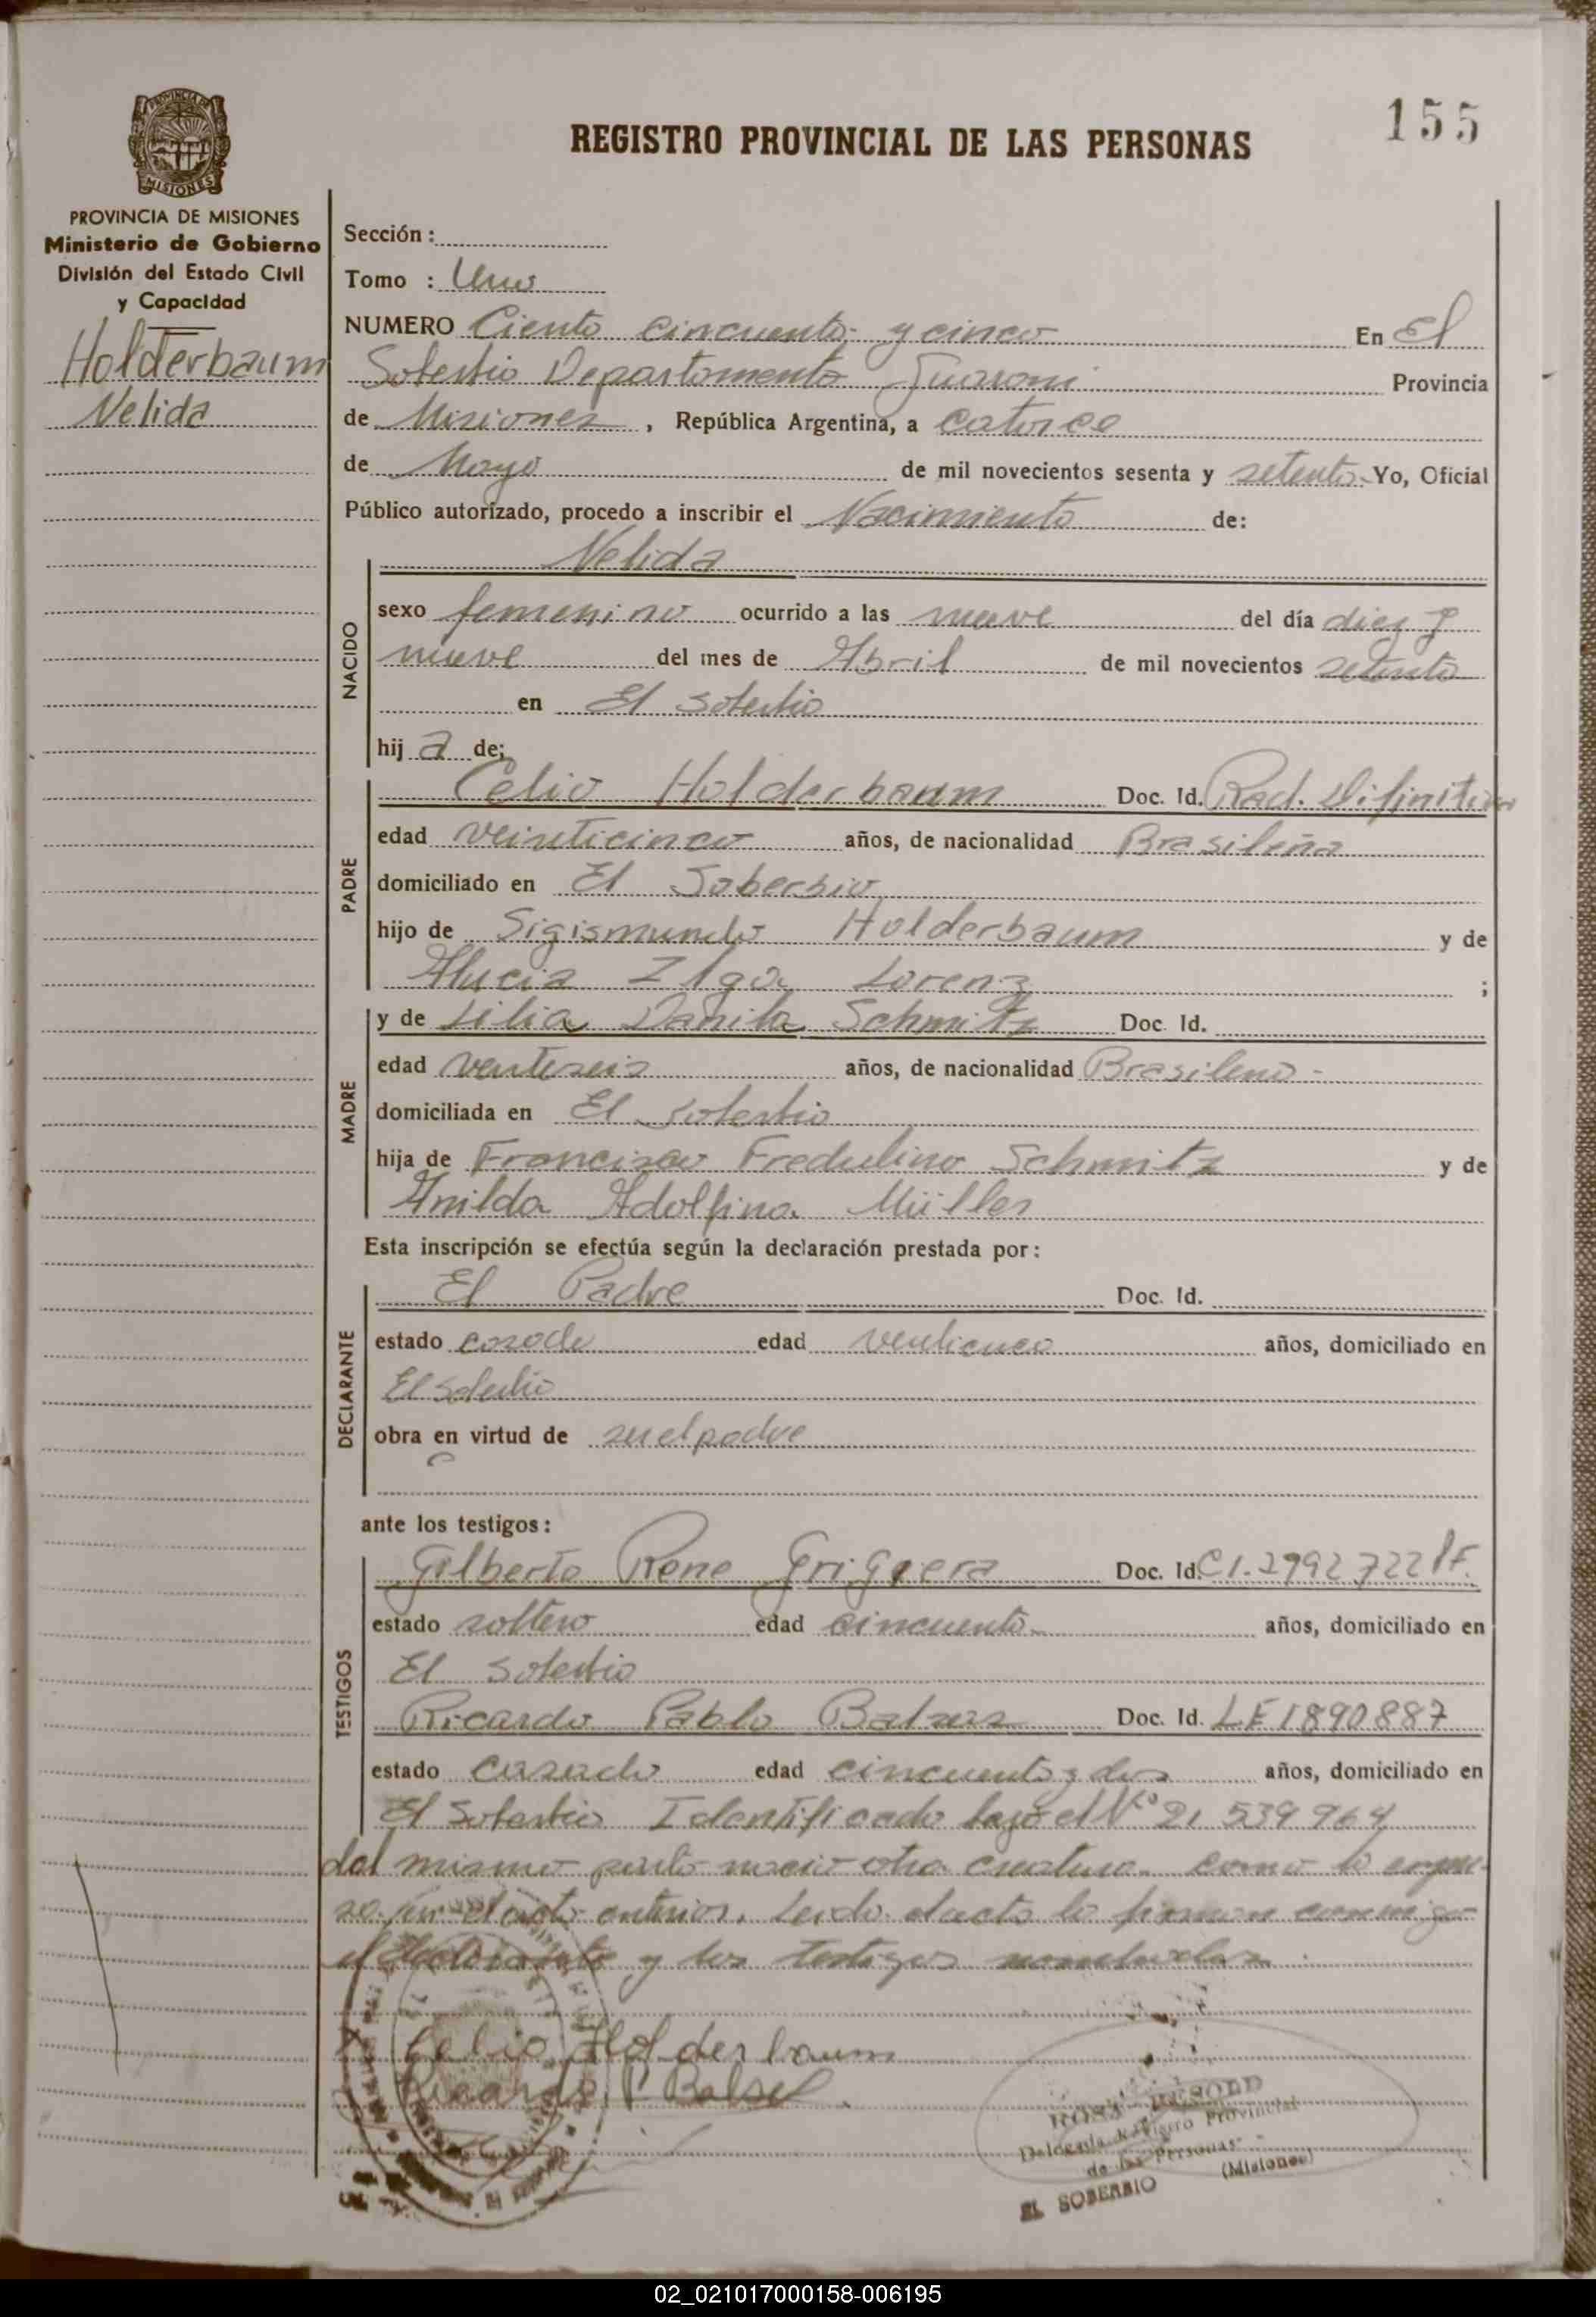 155
REGISTRO PROVINCIAL DE LAS PERSONAS
PROVINCIA DE MISIONES
Ministerio de Gobierno
División del Estado Civil
y Capacidad
Holderbaum
Nelida
Sección :
Tomo : Uno
NUMERO Ciento cincuenta y cinco En El
Soberbio Departamento Guarani Provincia
de Misiones , República Argentina, a catorce
de Mayo de mil novecientos sesenta y setenta Yo, Oficial
Público autorizado, procedo a inscribir el Nacimiento de:
Nelida
NACIDO
sexo femenino ocurrido a las nueve del día diez y
nueve del mes de Abril de mil novecientos setenta
en El Soberbio
hij a de;
PADRE
Celio Holderbaum Doc. Id. Rad. Difinitiva
edad veinticinco años, de nacionalidad Brasileña
domiciliado en El Soberbio
hijo de Sigismundo Holderbaum y de
Alucia Ilga Lorenz ;
MADRE
y de Lilia Danila Schmitz Doc. Id.
edad ventiseis años, de nacionalidad Brasilena
domiciliada en El Soberbio
hija de Francisco Fredulino Schmitz y de
Anilda Adolfina Müller
Esta inscripción se efectúa según la declaración prestada por :
DECLARANTE
El Padre Doc. Id.
estado casado edad venticinco años, domiciliado en
El Soberbio
obra en virtud de ser el padre
ante los testigos :
TESTIGOS
Gilberto Rene Griguera Doc. Id. C1. 2992722 PF.
estado soltero edad cincuenta años, domiciliado en
El Soberbio
Ricardo Pablo Doc. Id. LE 1890887
estado casado edad cincuenta y dos años, domiciliado en
El Soberbio Identificado bajo el Nº 21 539 964
del mismo parto nacio otra creatura como lo expre
so en el acta anterior. Leida el acta la firman conmigo
el declarante y los testigos nombrados
Celio Holderbaum
Ricardo P Balsel
ROSA
Delegada Registro Provincial
de las Personas
EL SOBERBIO (Misiones)
02_021017000158-006195